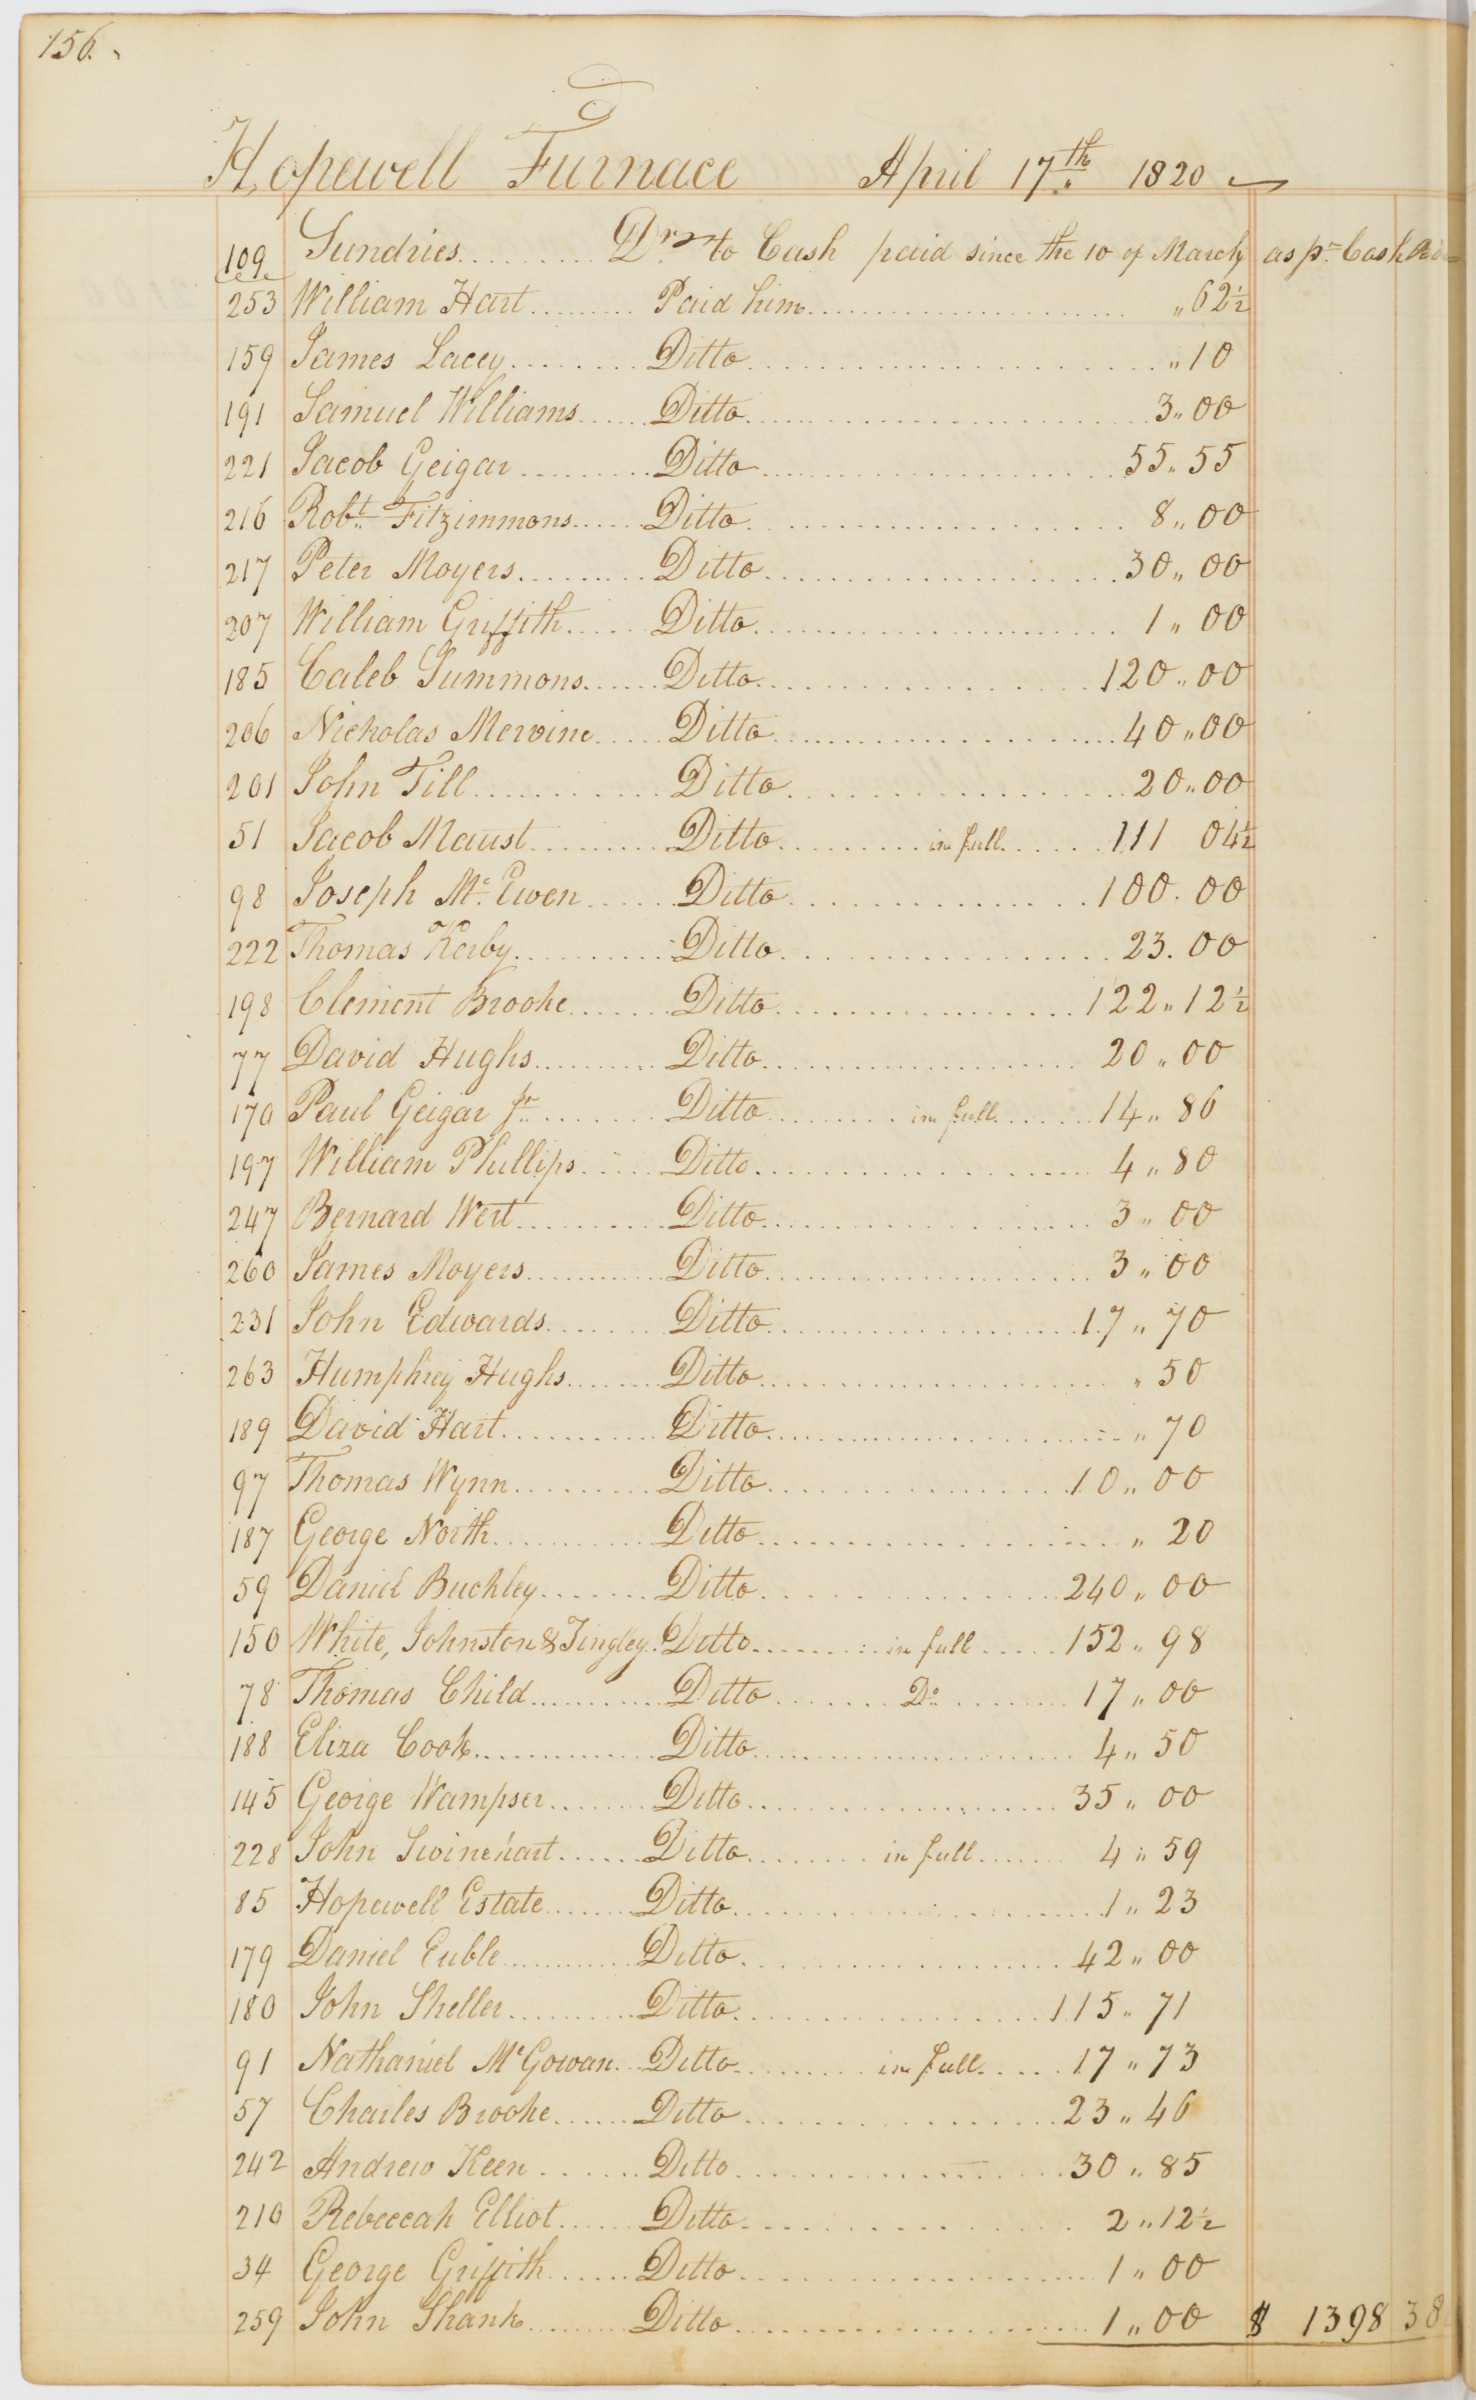 156.
Hopewell Furnace April 17th 1820
109 Sundries Drs to Cash paid since the 10 of March as pr Cash
253 William Hart Paid him „ 62½
159 James Lacey Ditto „ 10
191 Samuel Williams Ditto 3 „ 00
221 Jacob Geigar Ditto 55 „ 55
216 Robt Fitzimmons Ditto 8 „ 00
217 Peter Moyers Ditto 30 „ 00
207 William Griffith Ditto 1 „ 00
185 Caleb Summons Ditto 120 „ 00
206 Nicholas Mervine Ditto 40 „ 00
201 John Till Ditto 20 „ 00
51 Jacob Maust Ditto in full 111 04½
98 Joseph Mc Ewen Ditto 100. 00
222 Thomas Kerby Ditto 23. 00
198 Clement Brooke Ditto 122 „ 12½
77 David Hughs Ditto 20 „ 00
170 Paul Geigar Jr Ditto in full 14 „ 86
197 William Phillips Ditto 4 „ 80
247 Bernard Wert Ditto 3 „ 00
260 James Moyers Ditto 3 „ 00
231 John Edwards Ditto 17 „ 70
263 Humphrey Hughs Ditto „ 50
189 David Hart Ditto „ 70
97 Thomas Wynn Ditto 10 „ 00
187 George North Ditto „ 20
59 Daniel Buckley Ditto 240 „ 00
150 White, Johnston & Tingley Ditto in full 152 „ 98
78 Thomas Child Ditto Do 17 „ 00
188 Eliza Cook Ditto 4 „ 50
145 George Wampser Ditto 35 „ 00
228 John Swinehart Ditto in full 4 „ 59
85 Hopewell Estate Ditto 1 „ 23
179 Daniel Euble Ditto 42 „ 00
180 John Sheller Ditto 115 „ 71
91 Nathaniel McGowan Ditto in full 17 „ 73
57 Charles Brooke Ditto 23 „ 46
242 Andrew Keen Ditto 30 „ 85
210 Rebeccah Elliot Ditto 2 „ 12½
34 George Griffith Ditto 1 „ 00
259 John Shank Ditto 1 „ 00 $ 1398 38